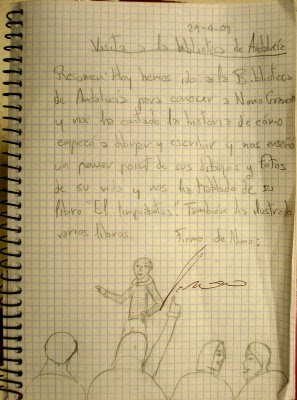 29-4-09
Visita a la biblioteca de Andalucía
Resumen: Hoy hemos ido a la Biblioteca
de Andalucía para conocer a Nono Granero
y nos ha contado la historia de cómo
empezó a dibujar y escribir y nos enseñó
un power point de sus dibujos y fotos
de su vida y nos ha hablado de su
libro "El limpiatintas". También ha ilustrado
varios libros. Firma de Nono: